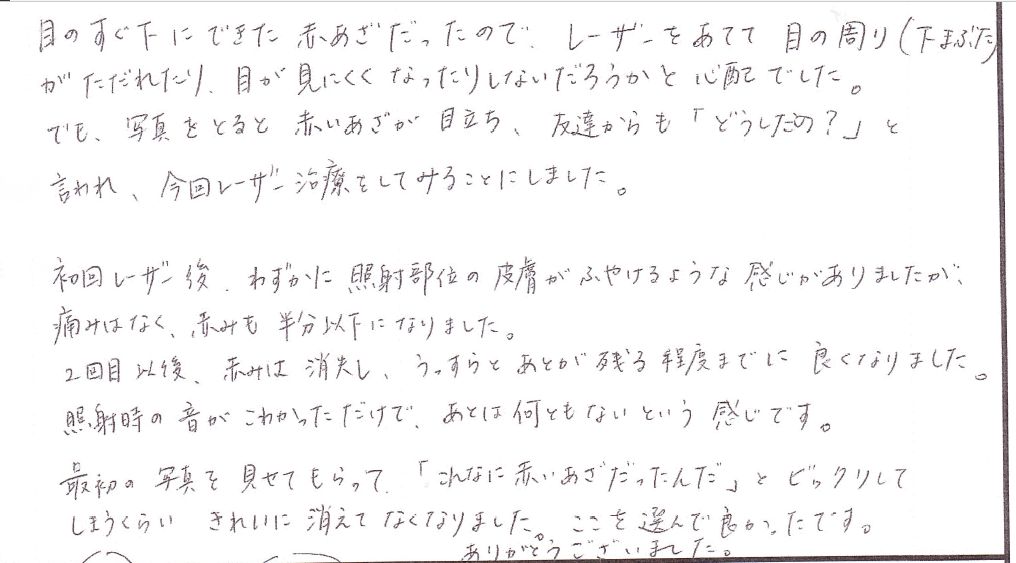 目のすぐ下にできた赤あざだったので、レーザーをあてて目の周り(下まぶた)
がただれたり、目が見にくくなったりしないだろうかと心配でした。
でも、写真をとると赤いあざが目立ち、友達からも「どうしたの?」と
言われ、今回レーザー治療をしてみることにしました。
初回レーザー後、わずかに照射部位の皮膚がふやけるような感じがありましたが、
痛みはなく、赤みも半分以下になりました。
2回目以後、赤みは消失し、うっすらとあとが残る程度までに良くなりました。
照射時の音がこわかっただけで、あとは何ともないという感じです。
最初の写真を見せてもらって、「こんなに赤いあざだったんだ」とビックリして
しまうくらいきれいに消えてなくなりました。ここを選んで良かったです。
ありがとうございました。